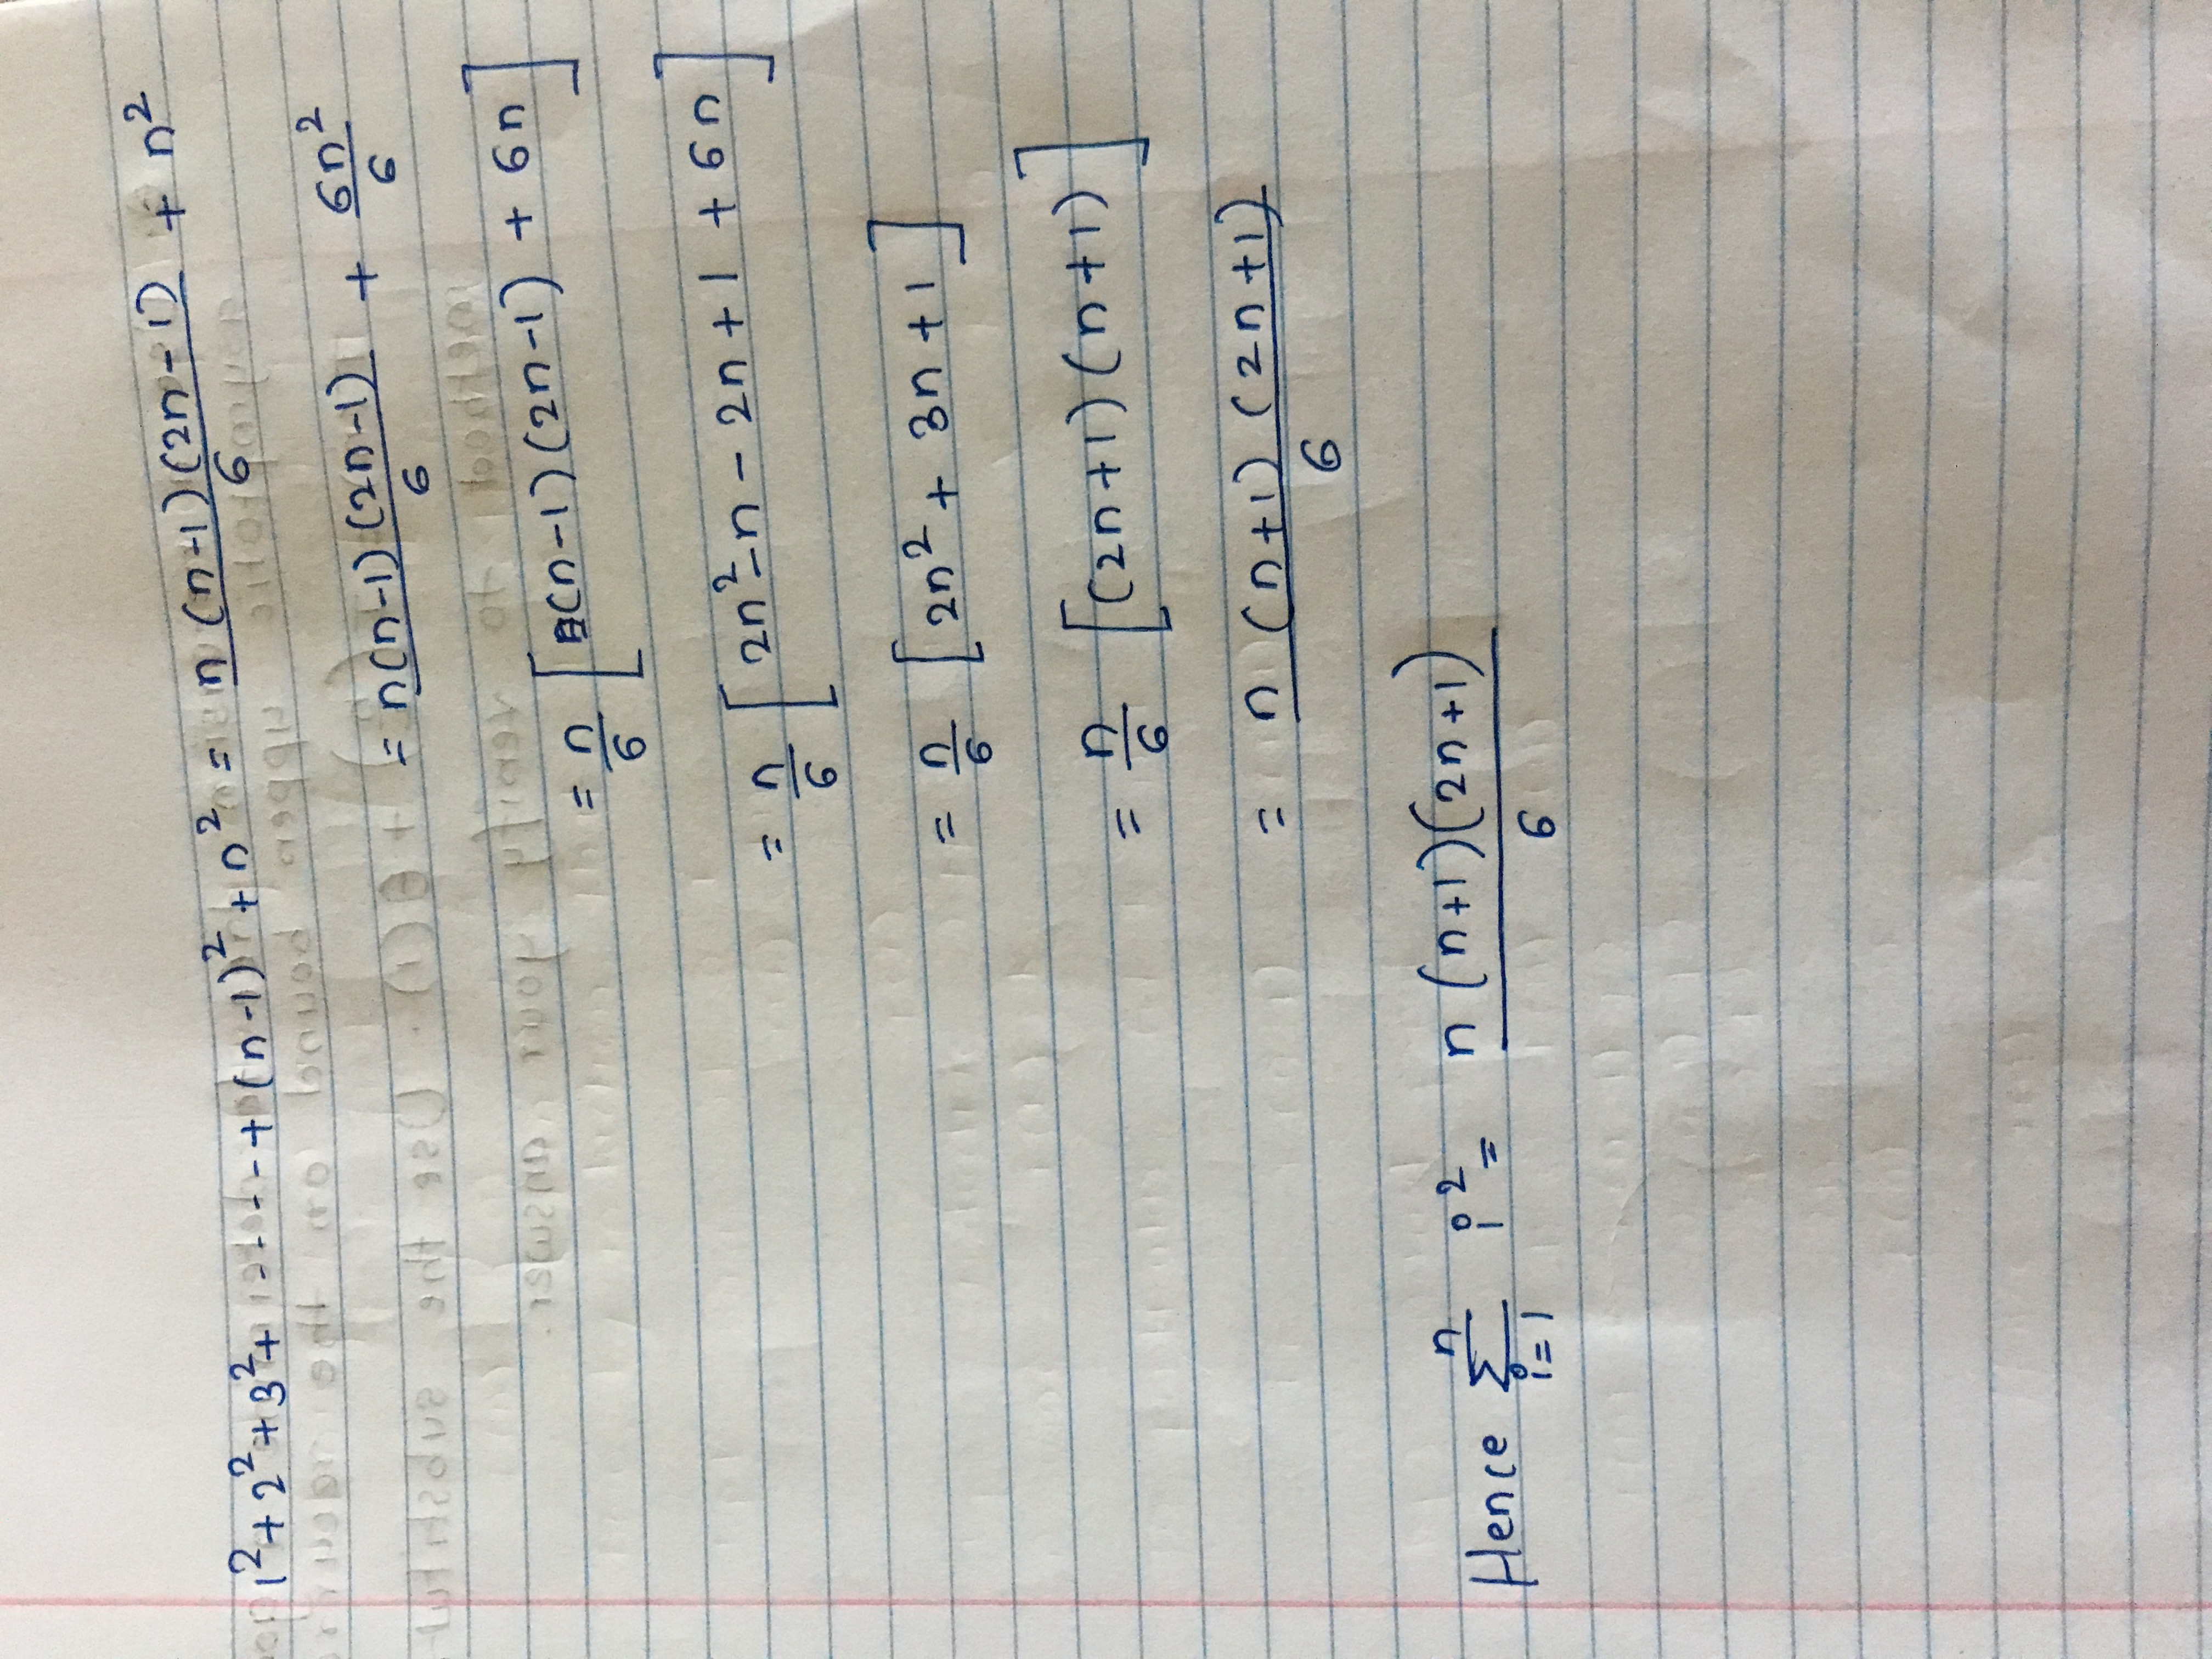 1² + 2² + 3² + ----- + (n-1)² + n² = n (n-1)(2n-1)/6 + n²
= n(n-1)(2n-1)/6 + 6n²/6
= n/6 [(n-1)(2n-1) + 6n]
= n/6 [2n² - n - 2n + 1 + 6n]
= n/6 [2n² + 3n + 1]
= n/6 [(2n+1)(n+1)]
= n (n+1) (2n+1)/6
Hence n∑i=1 i² = n (n+1)(2n+1)/6